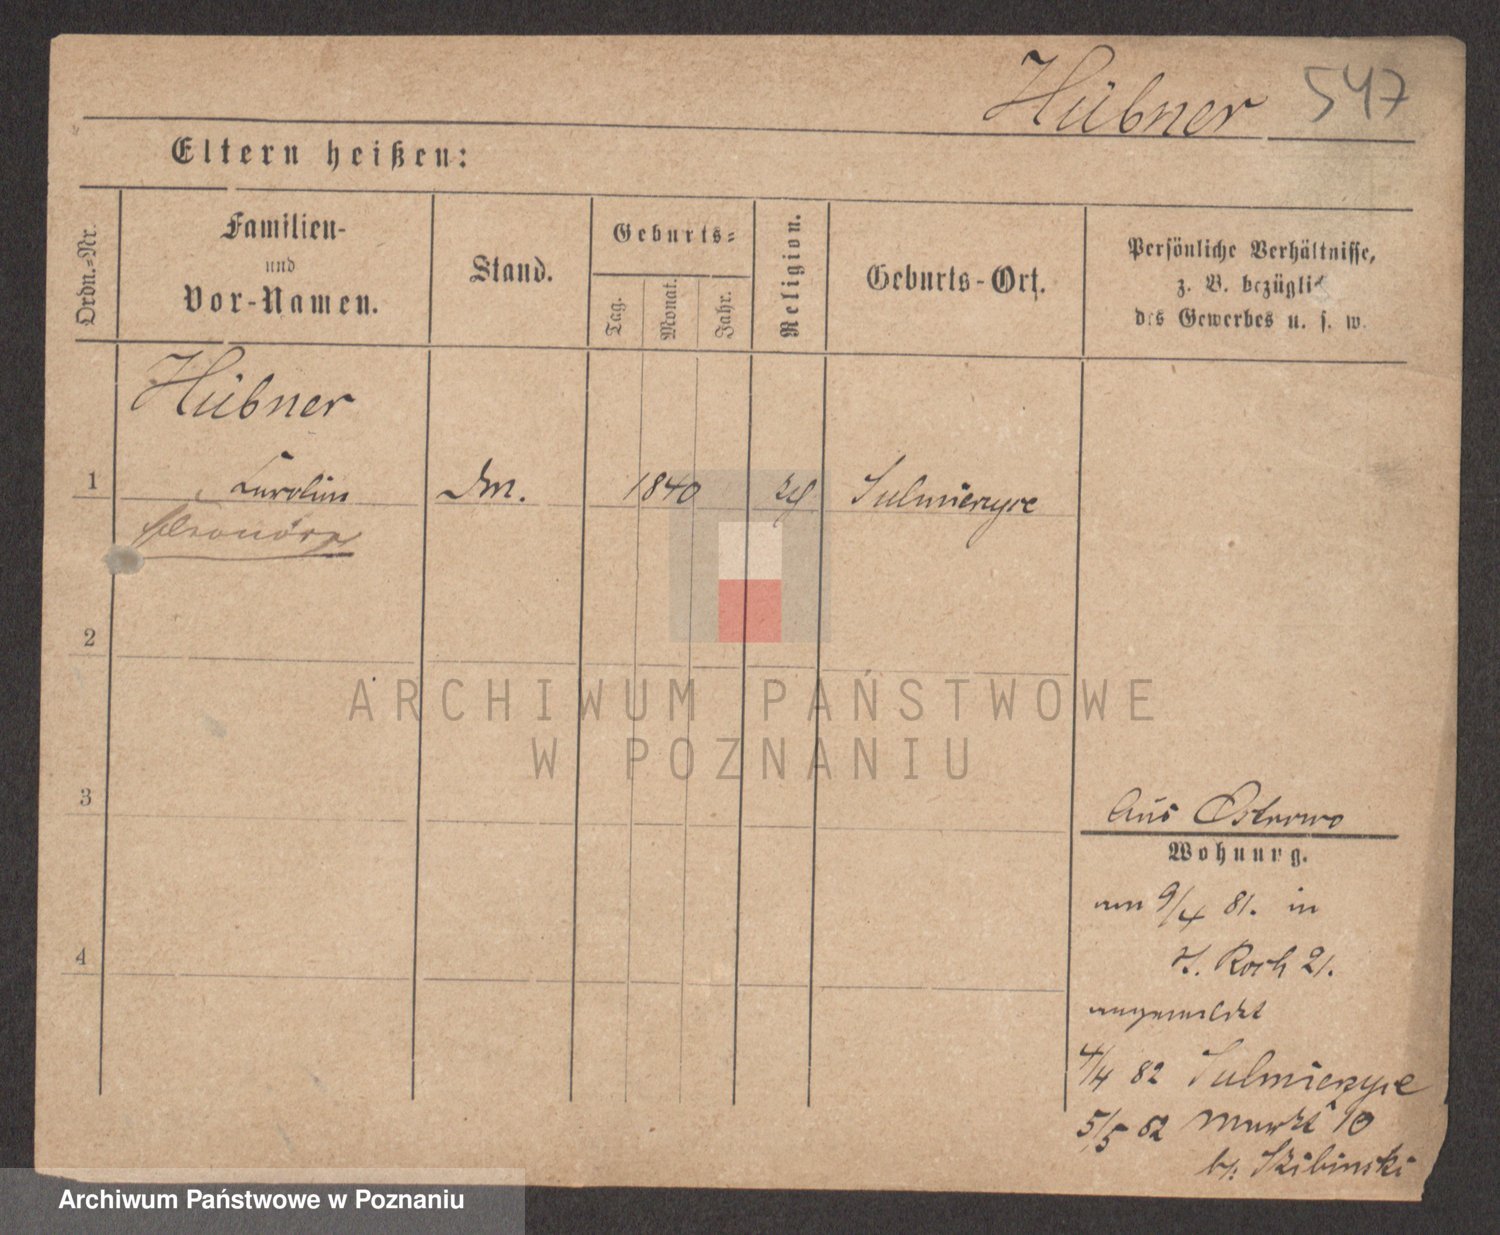 Hübner 547
Eltern heißen:
Ordn.-Nr.
Familien-
und
Vor-Namen.
Stand.
Geburts-
Tag.
Monat.
Jahr.
Religion.
Geburts-Ort.
Persönliche Verhältnisse,
z. B. bezüglich
des Gewerbes u. s. w.
Hübner
1 Carolina 1840 Sulmierzyce
2
3
4
Aus Ostrowo
Wohnung.
am 9/4 81. in
Roch 21.
angemeldet
4/4 82 Sulmierzyce
5/5 82 Markt 10
b/. Skibinski
ARCHIWUM PAŃSTWOWE
W POZNANIU
Archiwum Państwowe w Poznaniu